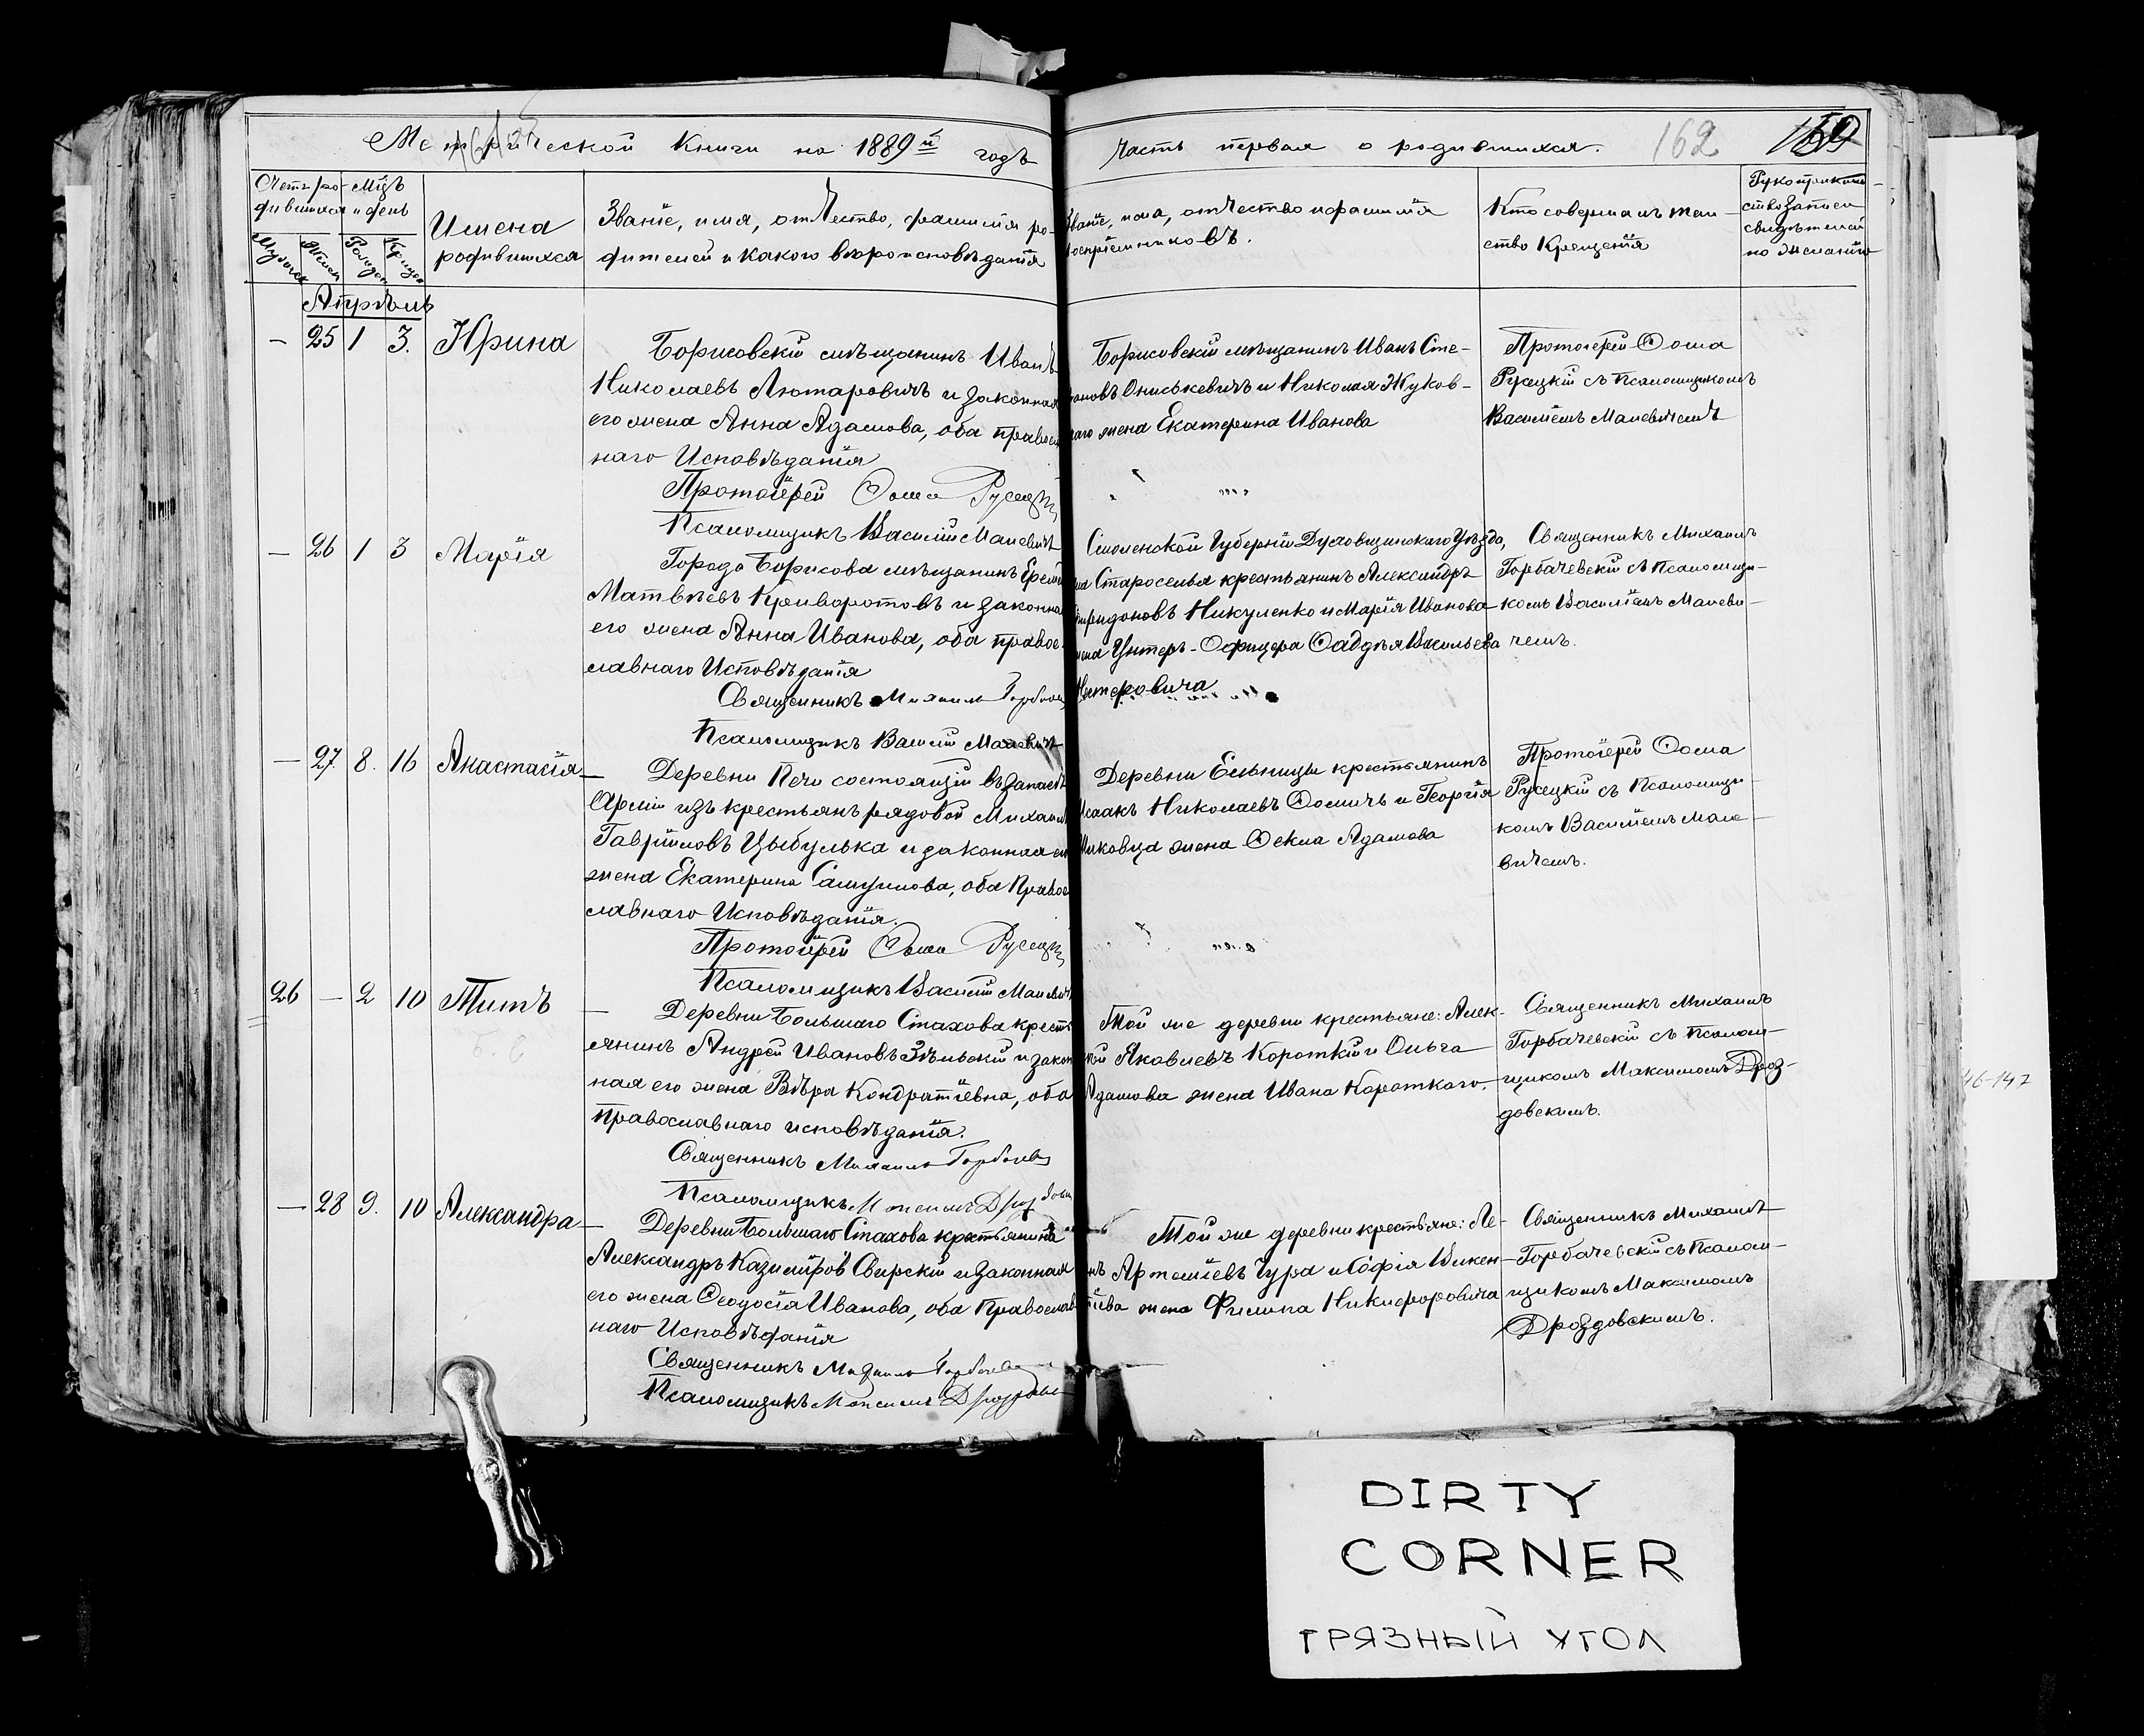 Метрической Книги на 1889й годъ
часть первая о родившихся.
162
Счетъ ро-
дившихся
Мцъ
и день
Имена
родившихся
Званіе, имя, отчество, фамилія ро-
дителей и какого вѣроисповѣданія
Званіе, имя, отчество и фамилія
воспріемниковъ.
Кто совершалъ таин-
ство Крещенія
Рукоприклад-
ство записи
свидѣтелей
по желанію
Апрѣль
— 25 1 3. Ирина
Борисовскій мѣщанинъ Иванъ
Николаевъ Лютаровичъ и законная
его жена Анна Адамова, оба православ
наго Исповѣданія
Протоіерей Ѳома Русецкій
Псаломщикъ Василій Малевичъ
Борисовскій мѣщанинъ Иванъ Сте-
пановъ Ониськевичъ и Николая Жуков-
скаго жена Екатерина Иванова
Протоіерей Ѳома
Русецкій съ Псаломщикомъ
Василіемъ Малевичемъ
— 26 1 3 Марія
Города Борисова мѣщанинъ
Матвѣевъ Криворотовъ и законная
его жена Анна Иванова, оба право-
славнаго Исповѣданія
Священникъ Михаилъ Горбачев
Псаломщикъ Василій Малевичъ
Смоленской Губерніи Духовщинскаго Уѣзда,
Староселья крестьянинъ Александръ
Спиридоновъ Никуленко и Марія Иванова
жена Унтеръ-Офицера Ѳаддѣя Васильева
Нестеровича
Священникъ Михаилъ
Горбачевскій съ Псаломщи-
комъ Василіемъ Малеви-
чемъ.
— 27. 8. 16 Анастасія
Деревни Печи состоящій въ Запасѣ
Арміи изъ крестьянъ рядовой Михаилъ
Гавріиловъ Цыбулька и законная его
жена Екатерина Самуилова, оба Право-
славнаго Исповѣданія.
Протоіерей Ѳома Русецкій
Псаломщикъ Василій Малевичъ
Деревни Ельницы крестьянинъ
Исаакъ Николаевъ Ѳомичъ и Георгія
жена Ѳекла Адамова
Протоіерей Ѳома
Русецкій съ Псаломщи-
комъ Василіемъ Мале-
вичемъ.
26 — 2 10 Титъ
Деревни Большаго Стахова кресть
янинъ Андрей Ивановъ Зѣльскій и закон
ная его жена Вѣра Кондратіевна, оба
Православнаго исповѣданія.
Священникъ Михаилъ Горбачев
Псаломщикъ Максимъ Дроздовск
Той же деревни крестьяне: Алек-
сѣй Яковлевъ Короткій и Ольга
Адамова жена Ивана Короткаго.
Священникъ Михаилъ
Горбачевскій съ Псалом-
щикомъ Максимомъ Дроз-
довскимъ.
46-147
— 28 9. 10 Александра
Деревни Большаго Стахова крестьянинъ
Александръ Казиміров Свирскій и Законная
его жена Ѳеодосія Иванова, оба Православ
наго Исповѣданія
Священникъ Михаилъ Горбачев
Псаломщикъ Максимъ Дроздовск
Той же деревни крестьяне: Ле-
онъ Артеміевъ Чура и Софія Викен-
тіева жена Филипа Никифоровича
Священникъ Михаилъ
Горбачевскій съ Псалом-
щикомъ Максимомъ
Дроздовскимъ.
DIRTY
CORNER
ГРЯЗНЫЙ УГОЛ